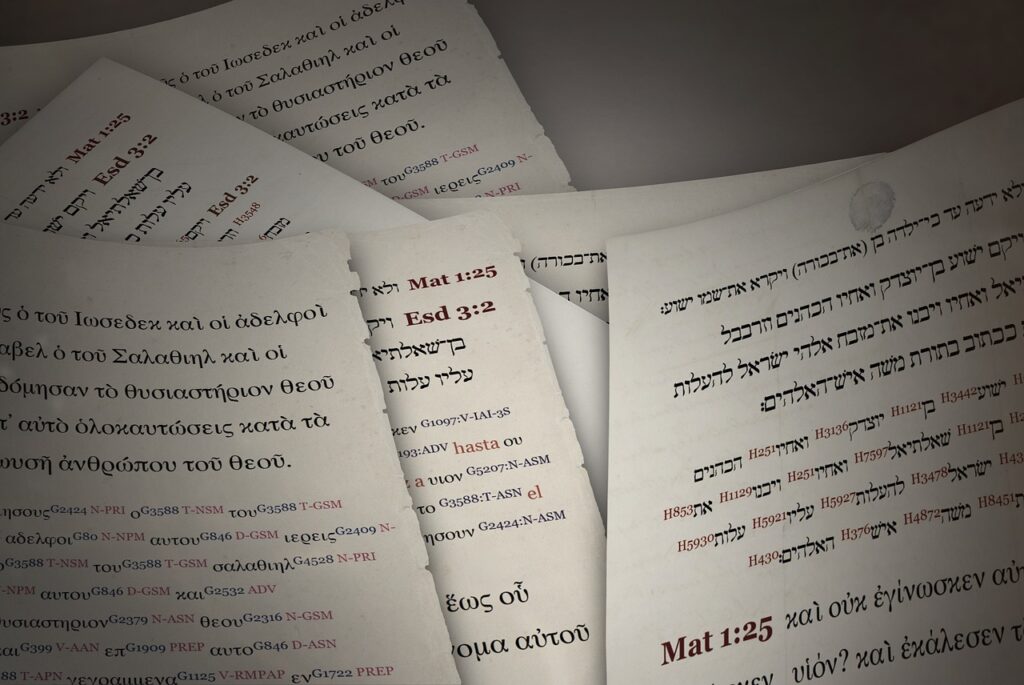 ὁ τοῦ Ιωσεδεκ καὶ οἱ ἀδελφ
ὁ τοῦ Σαλαθιηλ καὶ οἱ
τὸ θυσιαστήριον θεοῦ
καυτώσεις κατὰ τὰ
τοῦ θεοῦ.
τουG3588 T-GSM
ιερειςG2409 N-
N-PRI
3:2
Mat 1:25 ולא ידעה עד
Esd 3:2 ויקם ישו
בן־שאלתיאל
עליו עלות
Esd 3:2
H3548
ς ὁ τοῦ Ιωσεδεκ καὶ οἱ ἀδελφοὶ
αβελ ὁ τοῦ Σαλαθιηλ καὶ οἱ
δόμησαν τὸ θυσιαστήριον θεοῦ
τ᾽ αὐτὸ ὁλοκαυτώσεις κατὰ τὰ
ωυσῆ ἀνθρώπου τοῦ θεοῦ.
ησουςG2424 N-PRI οG3588 T-NSM τουG3588 T-GSM
αδελφοιG80 N-NPM αυτουG846 D-GSM ιερειςG2409 N-
G3588 T-NSM τουG3588 T-GSM σαλαθιηλG4528 N-PRI
-NPM αυτουG846 D-GSM καιG2532 ADV
υσιαστηριονG2379 N-ASN θεουG2316 N-GSM
αιG399 V-AAN επG1909 PREP αυτοG846 D-ASN
T-APN γεγραμμεναG1125 V-RMPAP ενG1722 PREP
Mat 1:25 ולא
Esd 3:2 ויק
בן־שאלתיא
עליו עלות
κεν G1097:V-IAI-3S
193:ADV hasta ου
a υιον G5207:N-ASM
το G3588:T-ASN el
ησουν G2424:N-ASM
ἕως οὗ
νομα αὐτοῦ
(את־בכורה)
ואחיו
ולא ידעה עד כי־ילדה בן (את־בכורה) ויקרא את־שמו ישוע׃
ויקם ישוע בן־יוצדק ואחיו הכהנים וזרבבל
יאל ואחיו ויבנו את־מזבח אלהי ישראל להעלות
ככתוב בתורת משה איש־האלהים׃
ישועH3442 בןH1121 יוצדקH3136 ואחיוH251 הכהנים
בןH1121 שאלתיאלH7597 ואחיוH251 ויבנוH1129 אתH853
ישראלH3478 להעלותH5927 עליוH5921 עלותH5930
H8451 משהH4872 אישH376 האלהים׃H430
Mat 1:25 καὶ οὐκ ἐγίνωσκεν αὐτ
υἱόν? καὶ ἐκάλεσεν τ